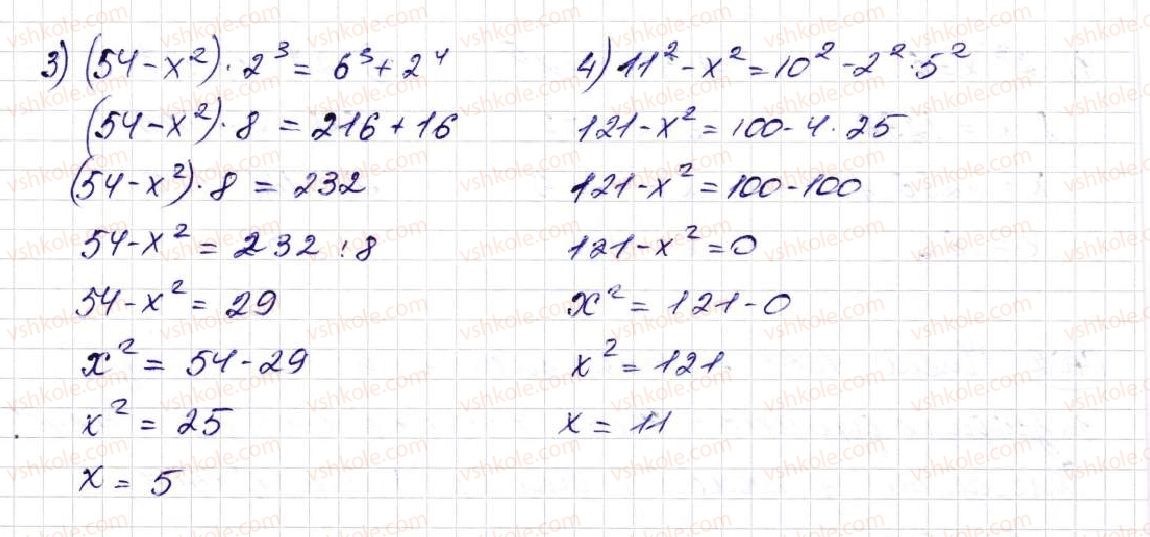 3) (54-x²)·2³ = 6³+2⁴
(54-x²)·8 = 216+16
(54-x²)·8 = 232
54-x² = 232:8
54-x² = 29
x² = 54-29
x² = 25
x = 5
4) 11²-x² = 10²-2²·5²
121-x² = 100-4·25
121-x² = 100-100
121-x² = 0
x² = 121-0
x² = 121
x = 11
vshkole.com